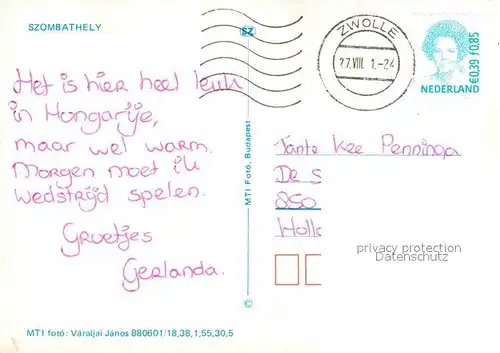 SZOMBATHELY
SZ
ZWOLLE
27.VIII 1.-24
NEDERLAND
€0,39 ƒ0,85
Het is hier heel leuk
in Hongarije,
maar wel warm.
Morgen moet ik
wedstrijd spelen.
Groetjes
Gerlanda.
MTI Fotó, Budapest
©
Tante Kee Penninga
De S
850
Holl
privacy protection
Datenschutz
MTI fotó: Váraljai János 880601/18,38,1;55,30,5